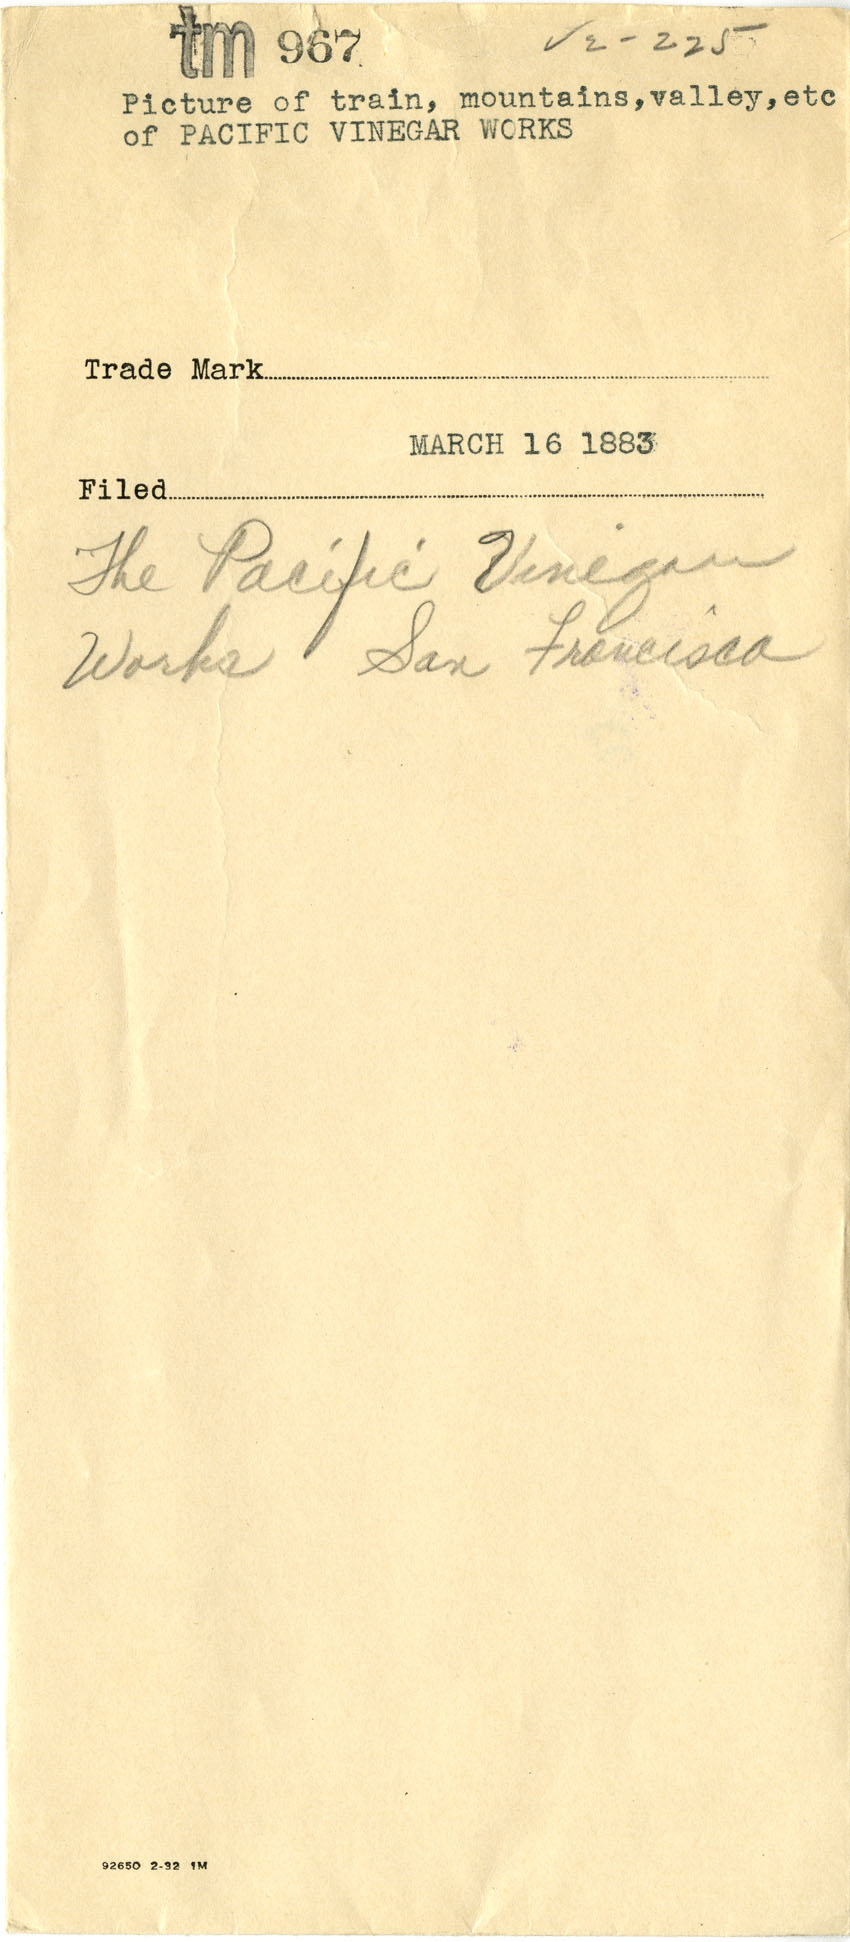 tm 967 √2-225
Picture of train, mountains,valley,etc
of PACIFIC VINEGAR WORKS
Trade Mark
MARCH 16 1883
Filed
The Pacific Vinegar
Works San Francisco
92650 2-32 1M